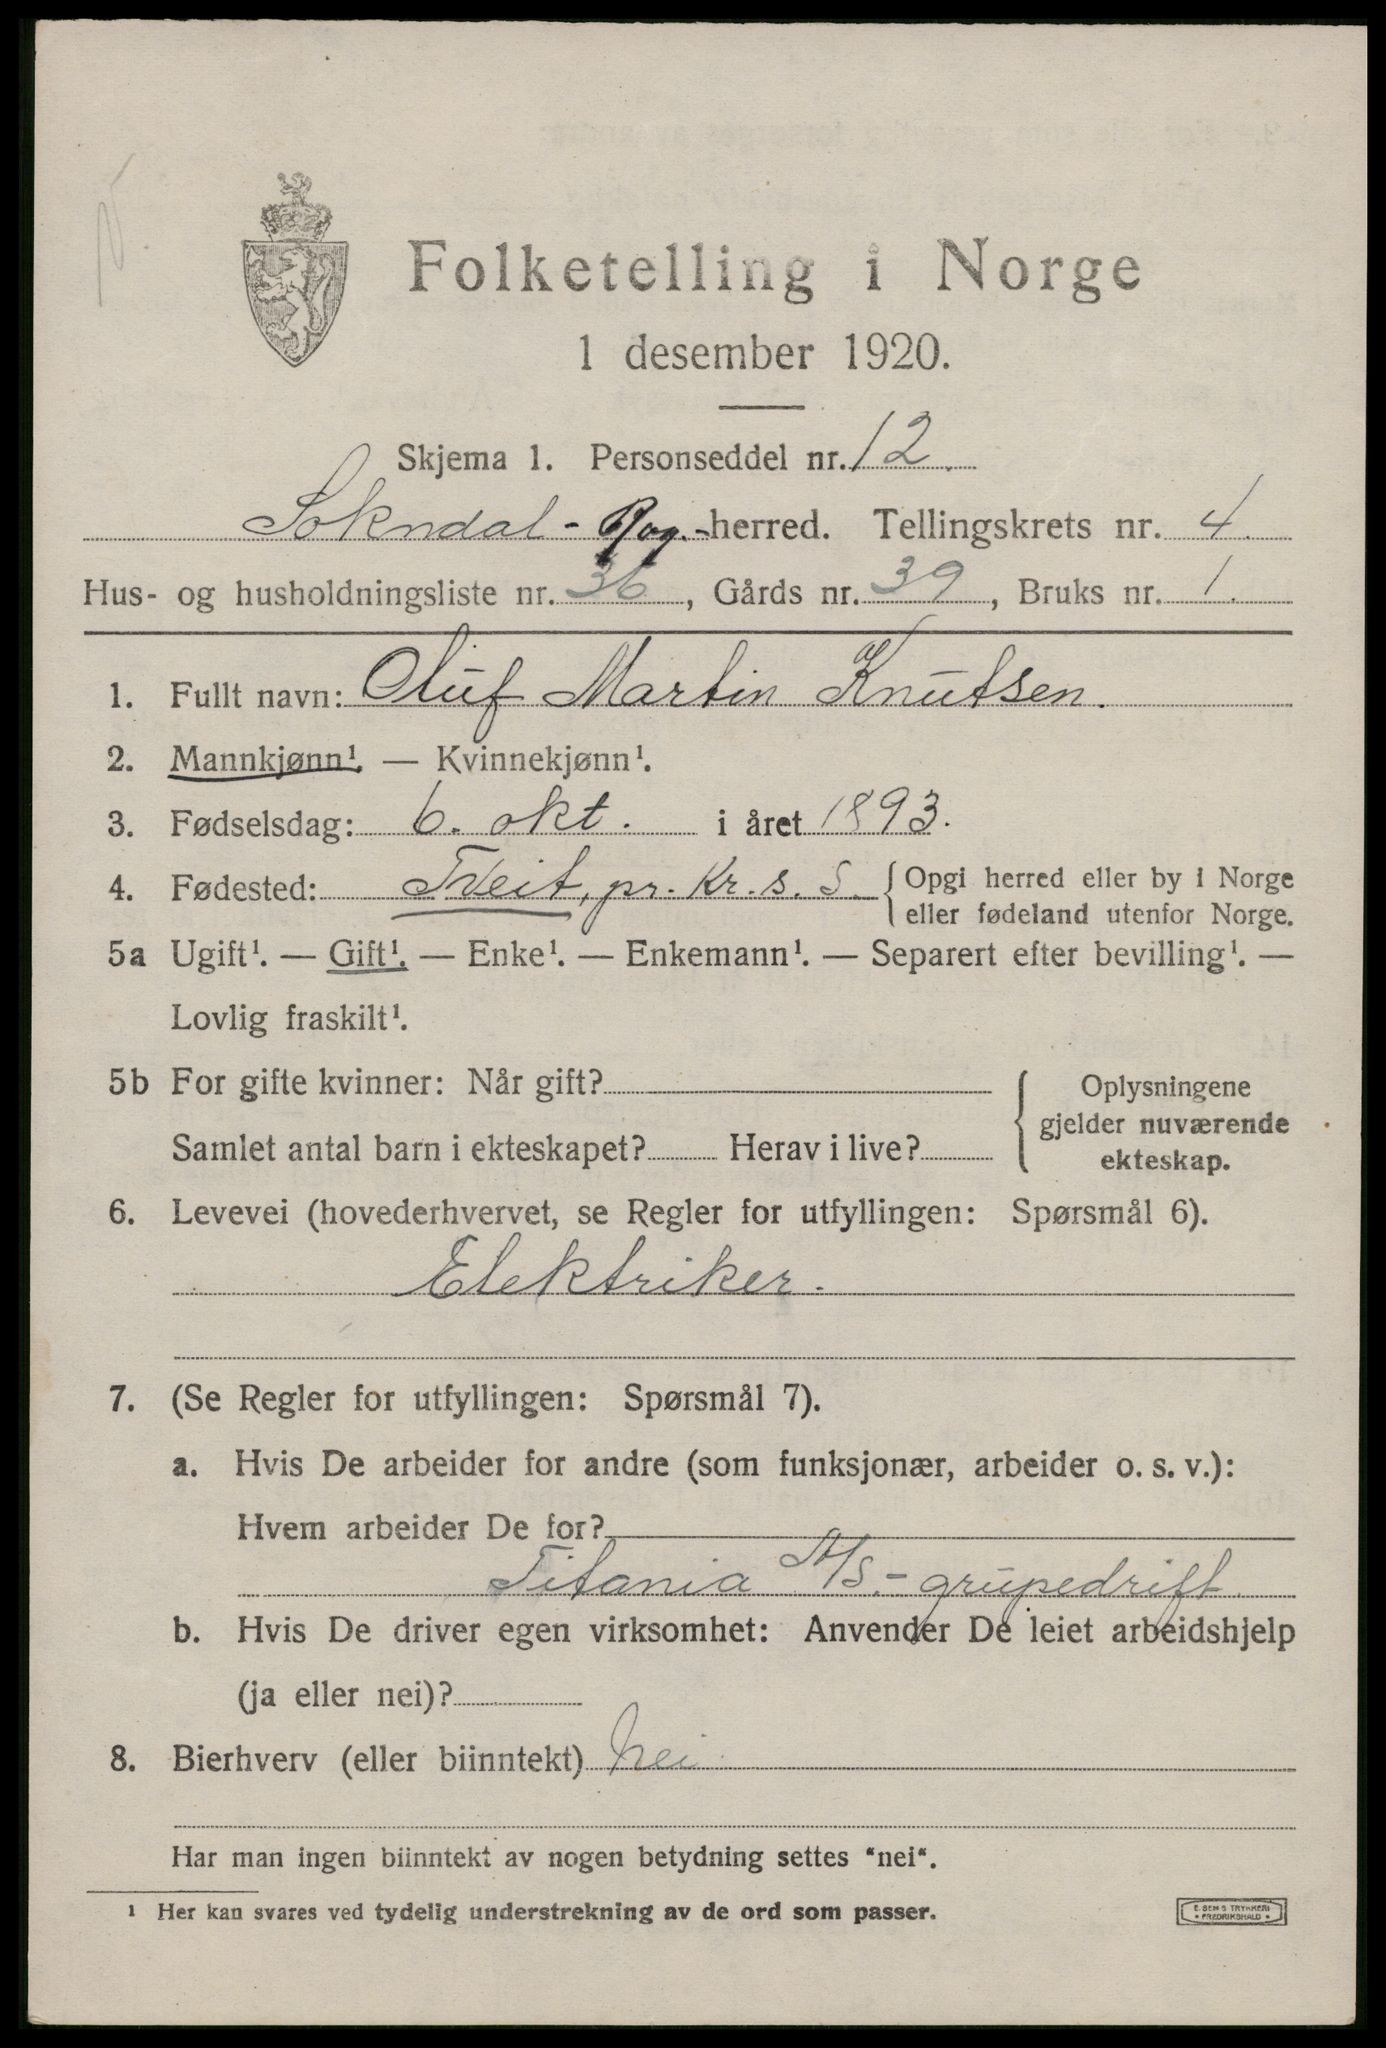 Folketelling i Norge
1 desember 1920.
Skjema 1. Personseddel nr. 12.
Sokndal - Rog.-herred. Tellingskrets nr. 4.
Hus- og husholdningsliste nr. 36, Gårds nr. 39, Bruks nr. 1.
1. Fullt navn: Oluf Martin Knutsen.
2. Mannkjønn¹. — Kvinnekjønn¹.
3. Fødselsdag: 6. okt. i året 1893.
4. Fødested: Tveit, pr. Kr.s. S. { Opgi herred eller by i Norge
eller fødeland utenfor Norge.
5a Ugift¹. — Gift¹. — Enke¹. — Enkemann¹. — Separert efter bevilling¹. —
Lovlig fraskilt¹.
5b For gifte kvinner: Når gift?
Samlet antal barn i ekteskapet? Herav i live?
{ Oplysningene
gjelder nuværende
ekteskap.
6. Levevei (hovederhvervet, se Regler for utfyllingen: Spørsmål 6).
Elektriker.
7. (Se Regler for utfyllingen: Spørsmål 7).
a. Hvis De arbeider for andre (som funksjonær, arbeider o. s. v.):
Hvem arbeider De for?
Titania A/S.- grupedrift
b. Hvis De driver egen virksomhet: Anvender De leiet arbeidshjelp
(ja eller nei)?
8. Bierhverv (eller biinntekt) Nei
Har man ingen biinntekt av nogen betydning settes "nei".
¹ Her kan svares ved tydelig understrekning av de ord som passer.
E. SEM'S TRYKKERI
• FREDRIKSHALD •